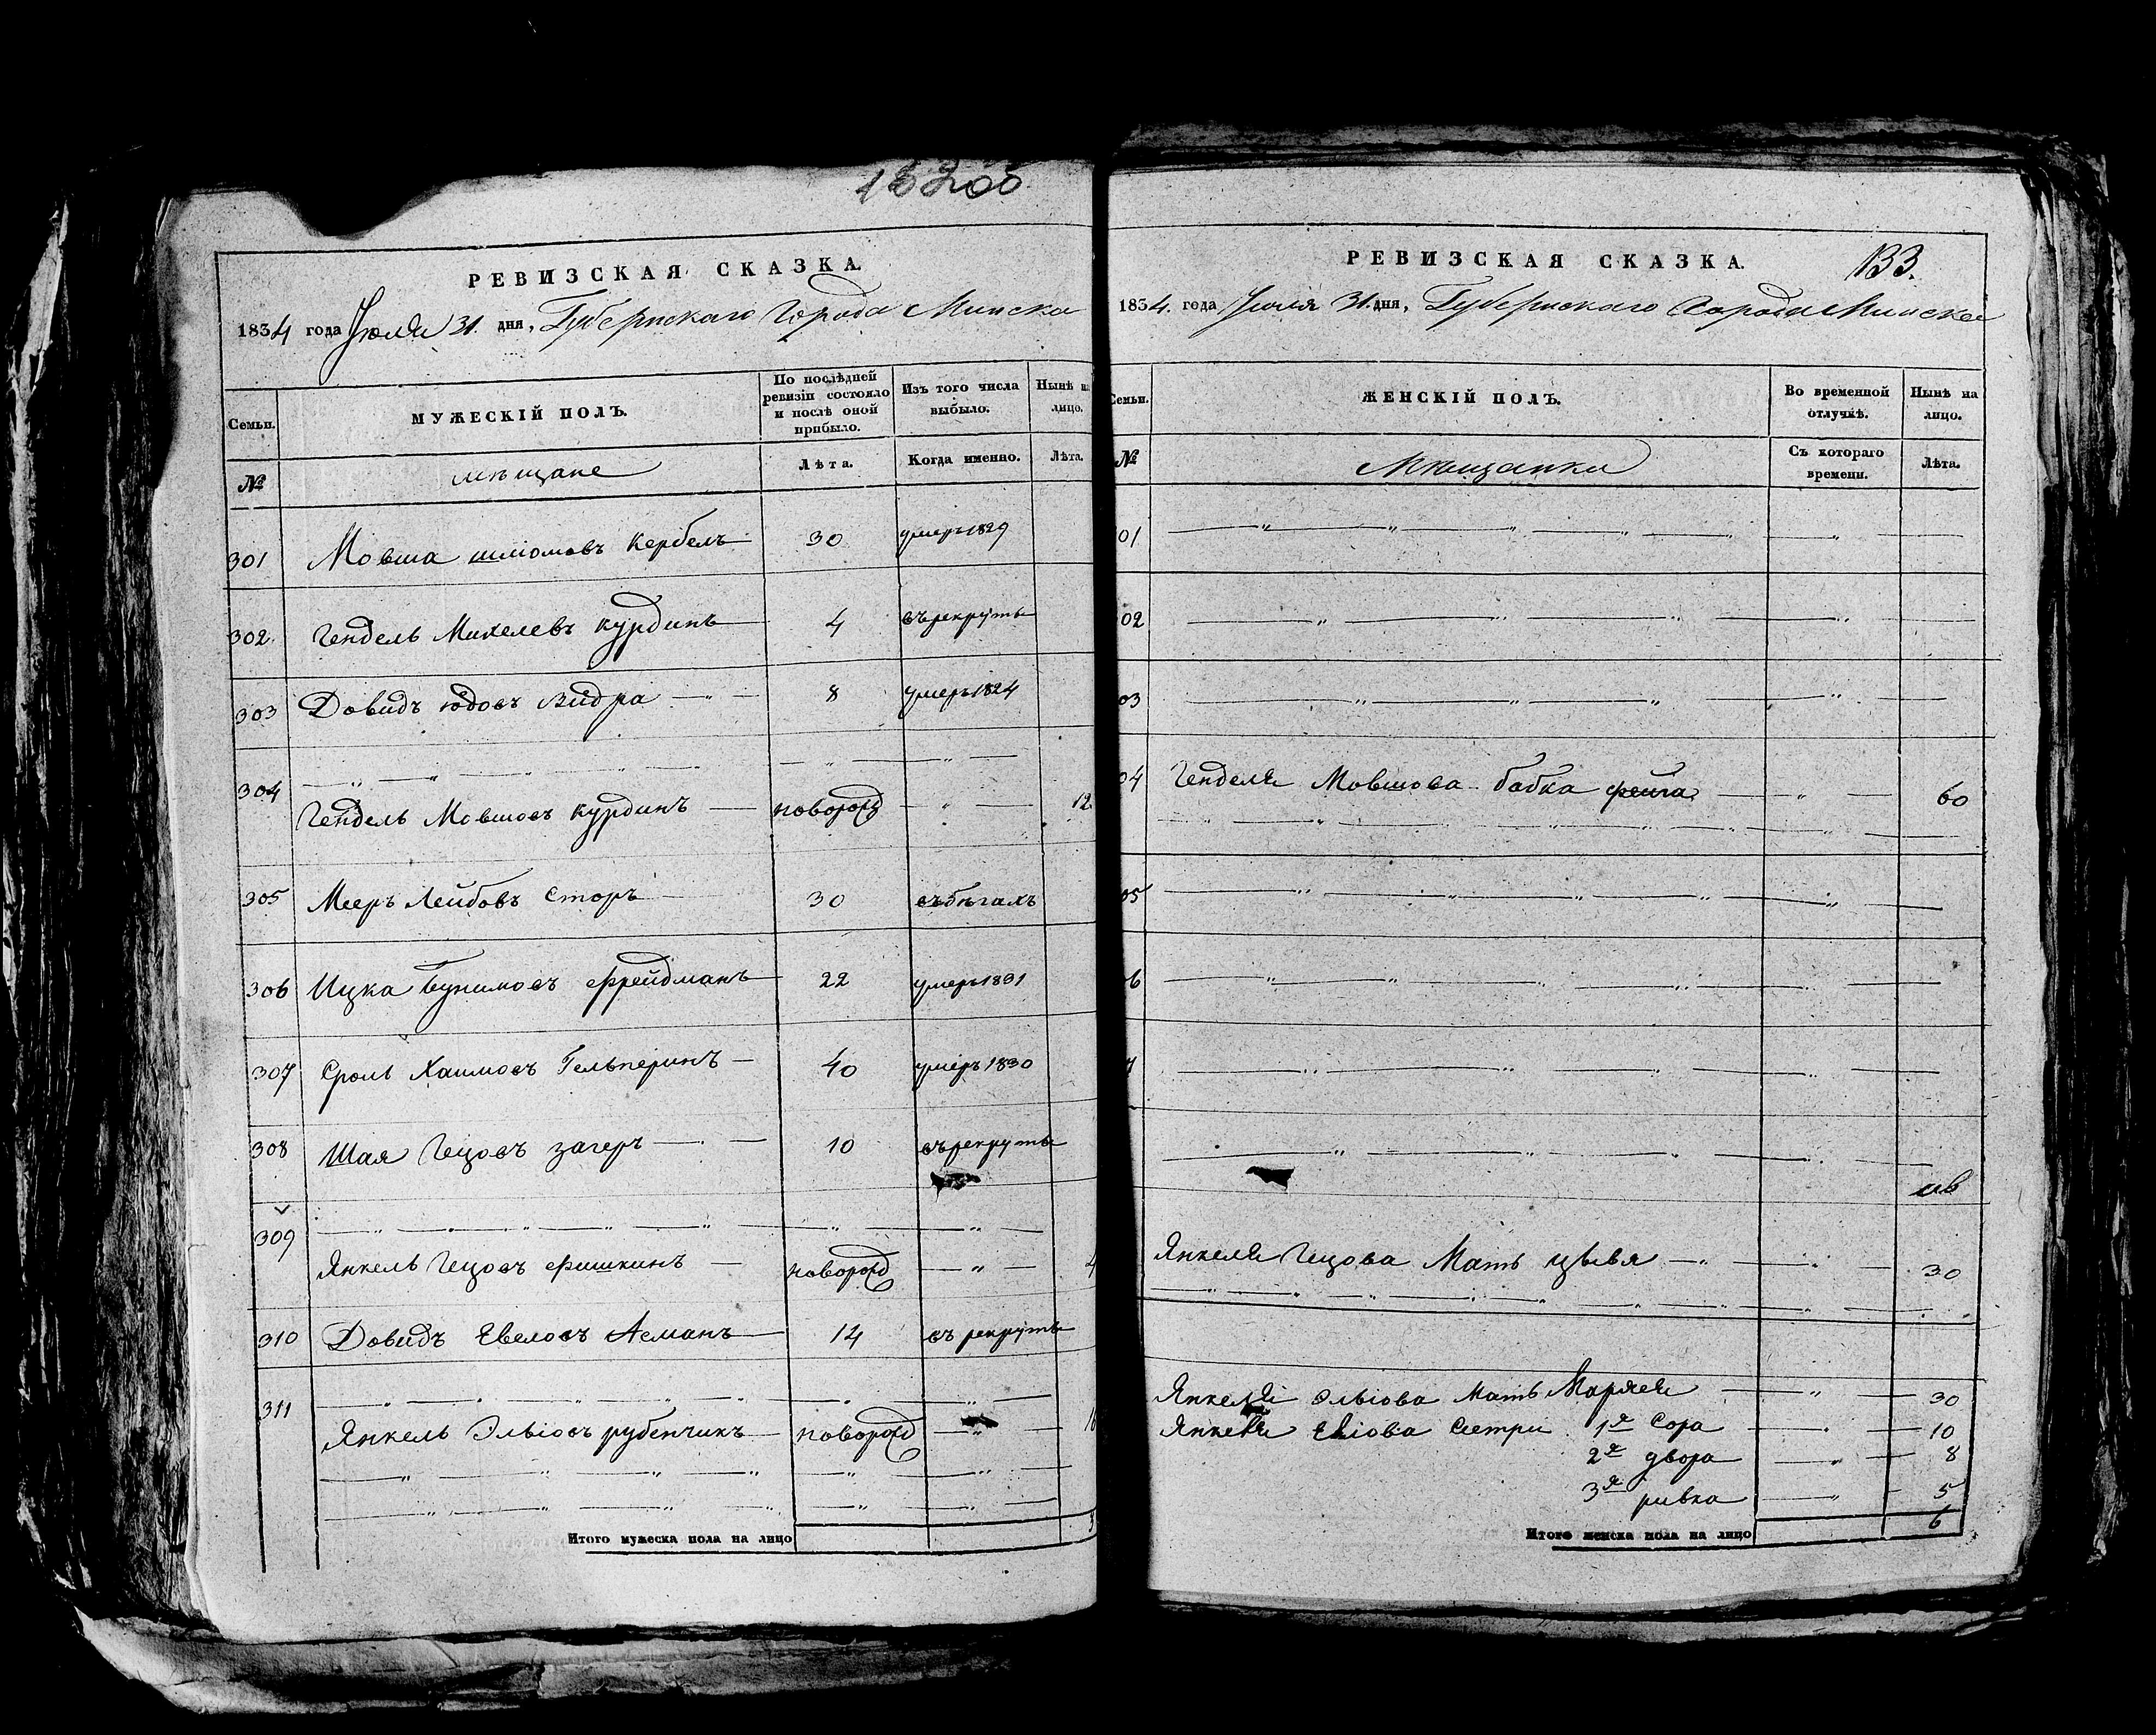 133.
РЕВИЗСКАЯ СКАЗКА.
1834 года Июля 31. дня, Губернскаго Города Минска
Семьи.
МУЖЕСКІЙ ПОЛЪ.
По послѣдней ревизіи состояло и послѣ оной прибыло.
Изъ того числа выбыло.
Нынѣ на лицо.
№
мѣщане
Лѣта.
Когда именно.
Лѣта.
301 Мовша Шліомовъ Кербель 30 умеръ 1829
302. Гендель Михелевъ Курдинъ 4 въ рекруты
303 Довидъ Юдовъ Видра 8 умеръ 1824
304
Гендель Мовшовъ Курдинъ новорожд 12
305 Мееръ Лейбовъ Сторъ 30 въ бѣгахъ
306 Ицка Бунимовъ Фрейдманъ 22 умеръ 1831
307 Сроль Хаимовъ Гельперинъ 40 умеръ 1830
308 Шая Гецовъ Загеръ 10 въ рекруты
309
Янкель Гецовъ Фишкинъ новорожд 4
310 Довидъ Евелевъ Асманъ 14 въ рекруты
311
Янкель Эльіовъ Рубенчикъ новорожд
Итого мужеска пола на лицо 3
РЕВИЗСКАЯ СКАЗКА.
1834. года Июля 31. дня, Губернскаго Города Минска
Семьи.
ЖЕНСКІЙ ПОЛЪ.
Во временной отлучкѣ.
Нынѣ на лицо.
№
Мѣщанки
Съ котораго времени.
Лѣта.
01
02
03
04 Генделя Мовшова бабка Фейга 60
05
6
7
Янкеля Гецова Мать Цывя 30
Янкеля Эльіова Мать Маряся 30
Янкеля Еліова Сестри 1я Сора 10
2я Двора 8
3я Ривка 5
Итого женска пола на лицо 6